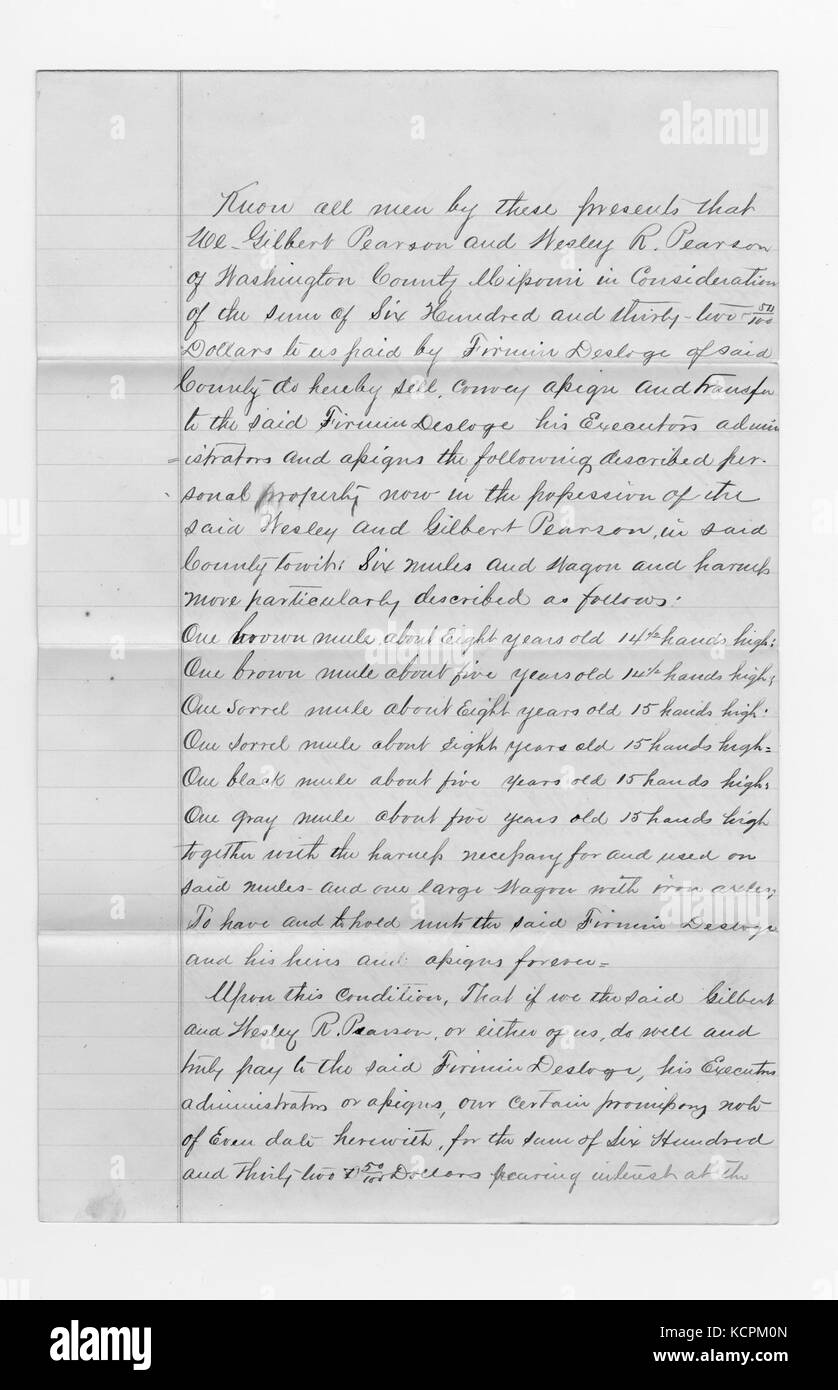 Know all men by these presents that
We Gilbert Pearson and Wesley R. Pearson
of Washington County Missouri in Consideration
of the sum of Six Hundred and thirty-two 50/100
Dollars to us paid by Firmin Desloge of said
County do hereby sell, convey assign and transfer
to the said Firmin Desloge his Executors admin
=istrators and assigns the following described per-
sonal property now in the possession of the
said Wesley and Gilbert Pearson, in said
County towit: Six mules and Wagon and harness
more particularly described as follows:
One brown mule about Eight years old 14 1/2 hands high:
One brown mule about five years old 14 1/2 hands high;
One Sorrel mule about Eight years old 15 hands high:
One sorrel mule about Eight years old 15 hands high=
One black mule about five years old 15 hands high:
One gray mule about five years old 15 hands high
together with the harness necessary for and used on
said mules- and one large Wagon with iron axles;
To have and to hold unto the said Firmin Desloge
and his heirs and assigns forever=
Upon this condition, That if we the said Gilbert
and Wesley R. Pearson, or either of us, do well and
truly pay to the said Firmin Desloge, his Executors
administrators or assigns, our certain promissory note
of Even date herewith, for the sum of Six Hundred
and thirty two 50/100 Dollars bearing interest at the
a
alamy
alamy
Image ID: KCPM0N
www.alamy.com